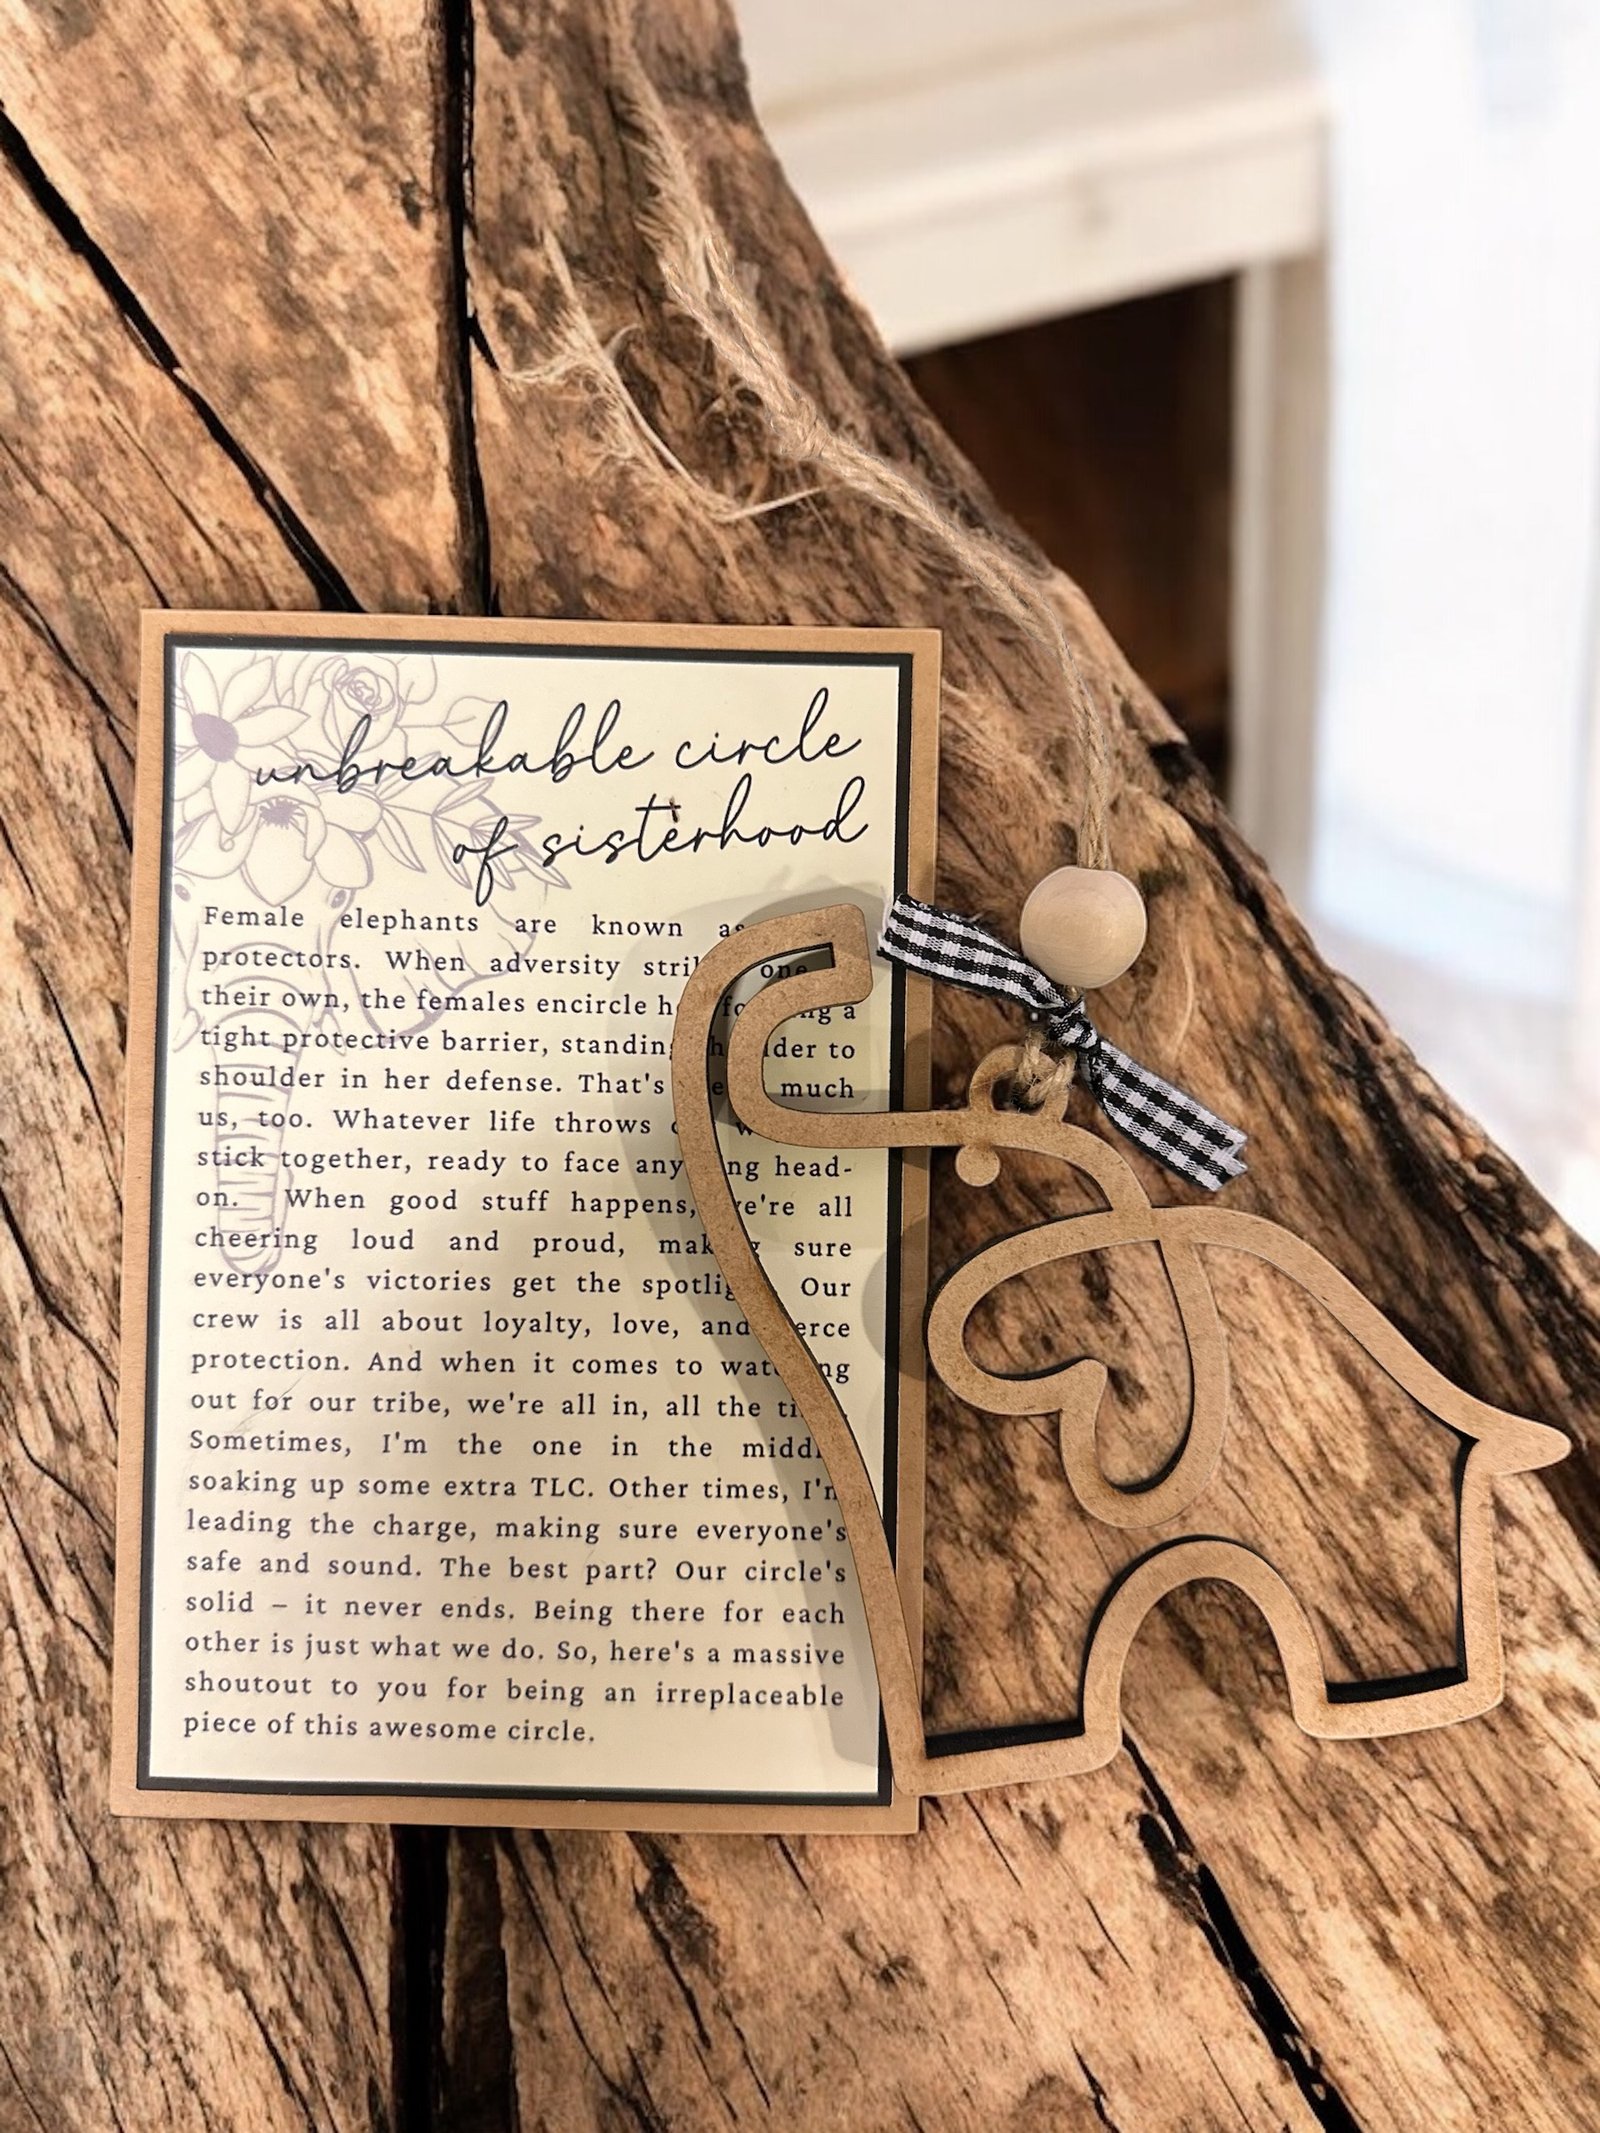 unbreakable circle
of sisterhood
Female elephants are known as
protectors. When adversity one
their own, the females encircle a
tight protective barrier, standing to
shoulder in her defense. That's much
us, too. Whatever life throws
stick together, ready to face anything head-
on. When good stuff happens, we're all
cheering loud and proud, making sure
everyone's victories get the spotlight. Our
crew is all about loyalty, love, and
protection. And when it comes to watching
out for our tribe, we're all in, all the
Sometimes, I'm the one in the middle
soaking up some extra TLC. Other times, I'm
leading the charge, making sure everyone's
safe and sound. The best part? Our circle's
solid – it never ends. Being there for each
other is just what we do. So, here's a massive
shoutout to you for being an irreplaceable
piece of this awesome circle.